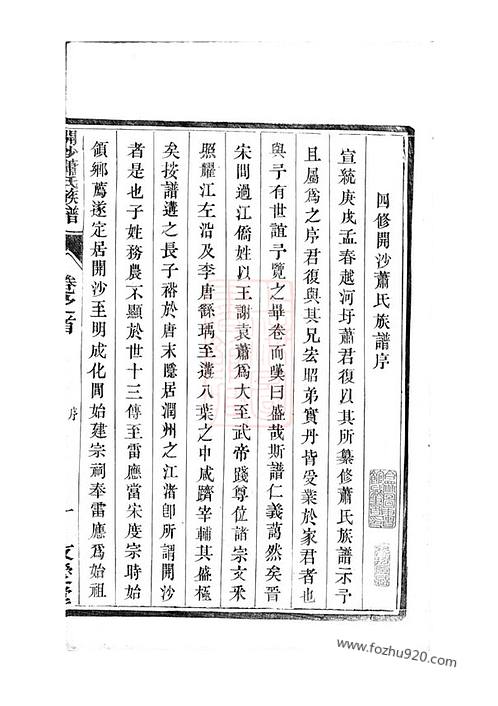 四修開沙蕭氏族譜序
宣統庚戌孟春越河圩蕭君復以其所纂修蕭氏族譜示予
且屬爲之序君復與其兄宏昭弟實丹皆受業於家君者也
與予有世誼予覽之畢卷而嘆曰盛哉斯譜仁義藹然矣晉
宋間過江僑姓以王謝袁蕭爲大至武帝踐尊位諸宗文釆
照耀江左浩及李唐繇瑀至遘八葉之中咸躋宰輔其盛極
矣按譜遘之長子裕於唐末隱居潤州之江渚卽所謂開沙
者是也子姓務農不顯於世十三傳至雷應當宋度宗時始
領鄉薦遂定居開沙至明成化間始建宗祠奉雷應爲始祖
開沙蕭氏族譜
卷之首
序
一
www.fozhu920.com